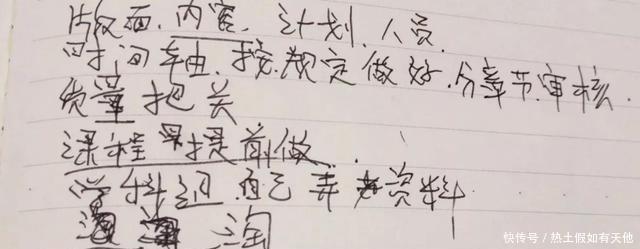 版面.内容.计划.人员.
时间轴.按规定做好.分章节.审核.
质量把关
课程 提前做.
学科组.自己弄 资料
淘
快传号/热土假如有天他